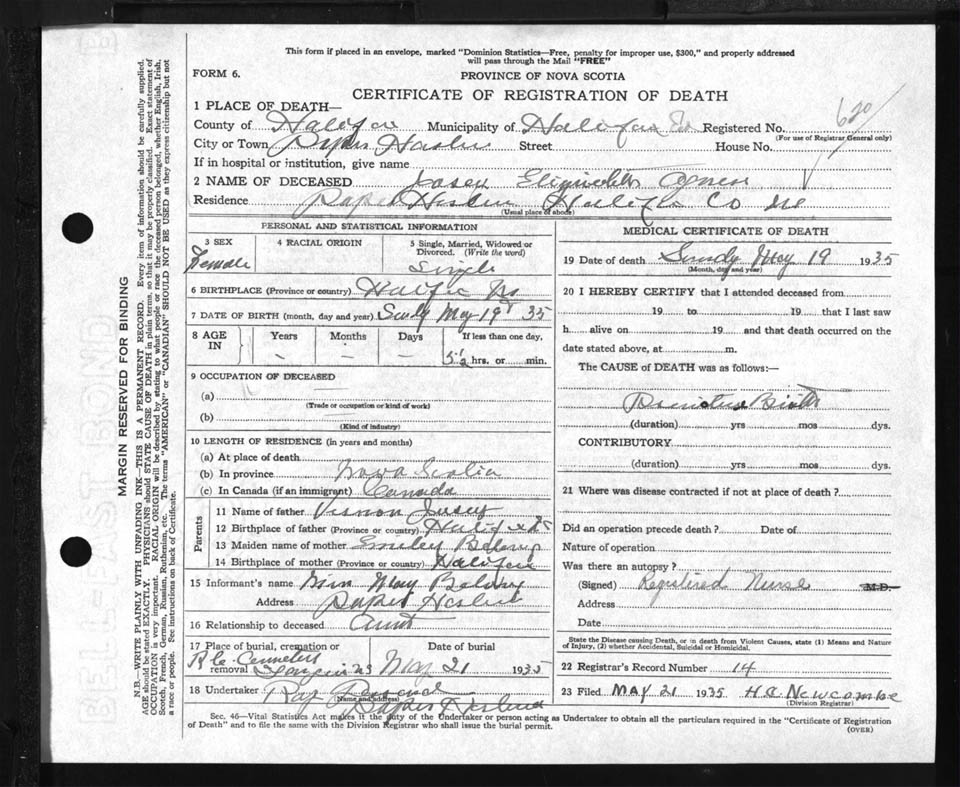 This form if placed in an envelope, marked "Dominion Statistics—Free, penalty for improper use, $300," and properly addressed
will pass through the Mail "FREE"
FORM 6.
PROVINCE OF NOVA SCOTIA
CERTIFICATE OF REGISTRATION OF DEATH
1 PLACE OF DEATH—
County of Halifax Municipality of Halifax Co Registered No. 620
(For use of Registrar General only)
City or Town Street House No.
If in hospital or institution, give name
2 NAME OF DECEASED Agnes
Residence Halifax Co
(Usual place of abode)
PERSONAL AND STATISTICAL INFORMATION
3 SEX
Female
4 RACIAL ORIGIN
5 Single, Married, Widowed or Divorced. (Write the word)
Single
6 BIRTHPLACE (Province or country) Halifax
7 DATE OF BIRTH (month, day and year) Sundy May 19 35
8 AGE IN
Years Months Days If less than one day,
– – – 5½ hrs. or min.
9 OCCUPATION OF DECEASED
(a)
(Trade or occupation or kind of work)
(b)
(Kind of industry)
10 LENGTH OF RESIDENCE (in years and months)
(a) At place of death
(b) In province Nova Scotia
(c) In Canada (if an immigrant) Canada
Parents
11 Name of father Vernon
12 Birthplace of father (Province or country) Halifax
13 Maiden name of mother
14 Birthplace of mother (Province or country) Halifax
15 Informant's name May
Address
16 Relationship to deceased Aunt
17 Place of burial, cremation or removal
Date of burial
May 21 1935
18 Undertaker Ray
(Name and address)
MEDICAL CERTIFICATE OF DEATH
19 Date of death Sundy May 19 1935
(Month, day and year)
20 I HEREBY CERTIFY that I attended deceased from
19 to 19 that I last saw
h alive on 19 and that death occurred on the
date stated above, at m.
The CAUSE of DEATH was as follows:—
Birth
(duration) yrs mos dys.
CONTRIBUTORY
(duration) yrs mos dys.
21 Where was disease contracted if not at place of death?
Did an operation precede death? Date of
Nature of operation
Was there an autopsy?
(Signed) Registired Nurse M.D.
Address
Date
State the Disease causing Death, or in death from Violent Causes, state (1) Means and Nature
of Injury, (2) whether Accidental, Suicidal or Homicidal.
22 Registrar's Record Number 14
23 Filed MAY 21 1935 H.C. Newcombe
(Division Registrar)
Sec. 46—Vital Statistics Act makes it the duty of the Undertaker or person acting as Undertaker to obtain all the particulars required in the "Certificate of Registration
of Death" and to file the same with the Division Registrar who shall issue the burial permit.
(OVER)
MARGIN RESERVED FOR BINDING
N.B.—WRITE PLAINLY WITH UNFADING INK—THIS IS A PERMANENT RECORD. Every item of information should be carefully supplied.
AGE should be stated EXACTLY. PHYSICIANS should STATE CAUSE OF DEATH in plain terms, so that it may be properly classified. Exact statement of
OCCUPATION is very important. RACIAL ORIGIN will be described by stating to what people or race the deceased person belonged, whether English, Irish,
Scotch, French, German, Russian, Ruthenian, etc. The terms "AMERICAN" or "CANADIAN" SHOULD NOT BE USED as they express citizenship but not
a race or people. See instructions on back of Certificate.